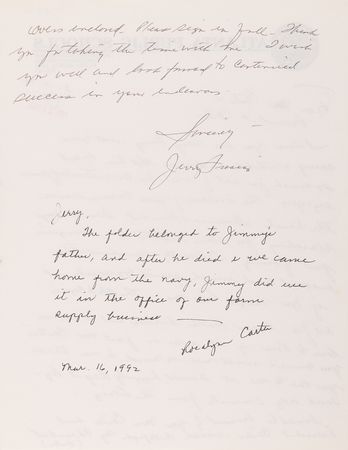 enclosed. Please sign in full. Thank
you for taking the time with me. I wish
you well and look forward to continued
success in your endeavors.
Sincerely
Jerry
Jerry,
The folder belonged to Jimmy's
father, and after he died & we came
home from the navy, Jimmy did use
it in the office of our farm
supply business
Rosalynn Carter
Mar. 16, 1992